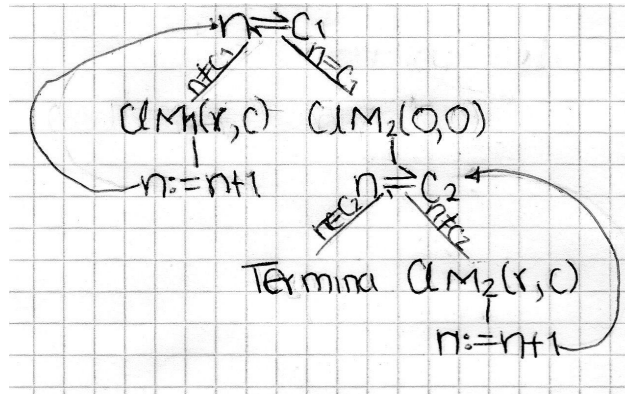 n ⇌ C₁
n≠C₁ n=C₁
ClM₁(r,c) ClM₂(0,0)
n:=n+1 n ⇌ C₂
n=C₂ n≠C₂
Termina ClM₂(r,c)
n:=n+1